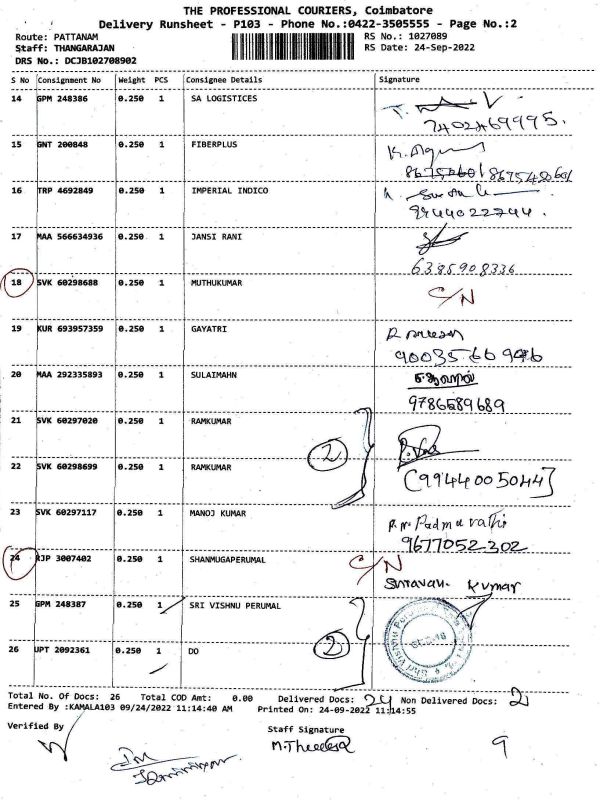 THE PROFESSIONAL COURIERS, Coimbatore
Delivery Runsheet - P103 - Phone No.:0422-3505555 - Page No.:2
Route: PATTANAM RS No.: 1027089
Staff: THANGARAJAN RS Date: 24-Sep-2022
DRS No.: DCJB102708902
S No Consignment No Weight PCS Consignee Details Signature
14 GPM 248386 0.250 1 SA LOGISTICES
7402469995.
15 GNT 200848 0.250 1 FIBERPLUS
8675420601
16 TRP 4692849 0.250 1 IMPERIAL INDICO
9244022744.
17 MAA 566634936 0.250 1 JANSI RANI
6385908336
18 SVK 60298688 0.250 1 MUTHUKUMAR C/N
19 KUR 693957359 0.250 1 GAYATRI
90035 66 946
20 MAA 292335893 0.250 1 SULAIMAHN
9786589689
21 SVK 60297020 0.250 1 RAMKUMAR
2
22 SVK 60298699 0.250 1 RAMKUMAR
[9944005044]
23 SVK 60297117 0.250 1 MANOJ KUMAR
9677052302
24 RJP 3007402 0.250 1 SHANMUGAPERUMAL C/N
Kumar
25 GPM 248387 0.250 1 SRI VISHNU PERUMAL
2
26 UPT 2092361 0.250 1 DO
Total No. Of Docs: 26 Total COD Amt: 0.00 Delivered Docs: 24 Non Delivered Docs: 2
Entered By :KAMALA103 09/24/2022 11:14:40 AM Printed On: 24-09-2022 11:14:55
Verified By Staff Signature
9